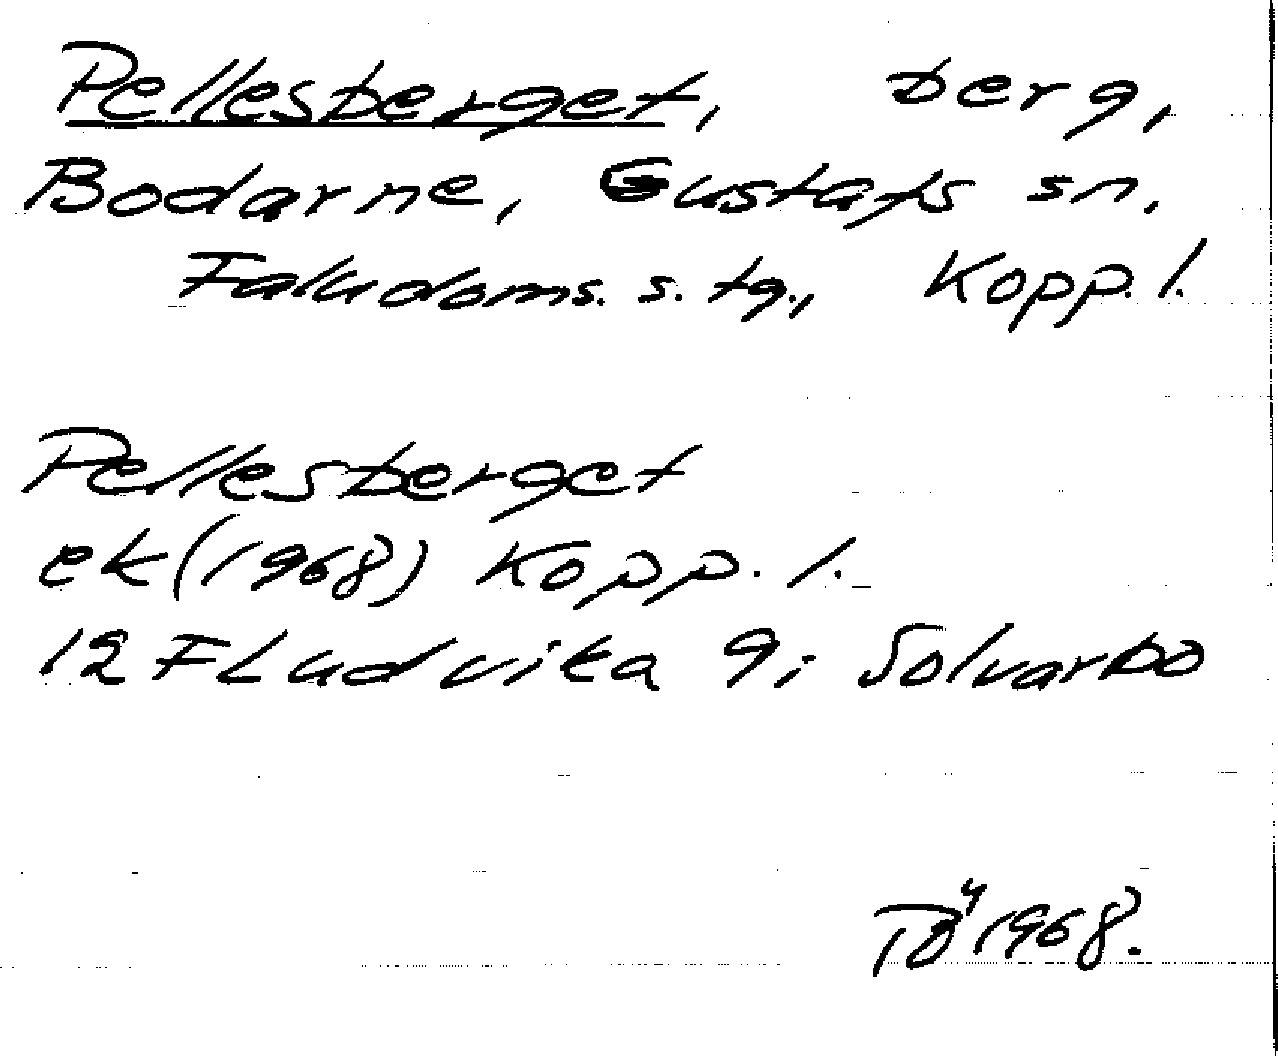 Pellesberget, berg,
Bodarne, Gustafs sn.
Faludoms. s. tg., Kopp. l.
Pellesberget
ek (1968) Kopp. l.
12 F Ludvika 9i Solvarbo
TÖ 1968.